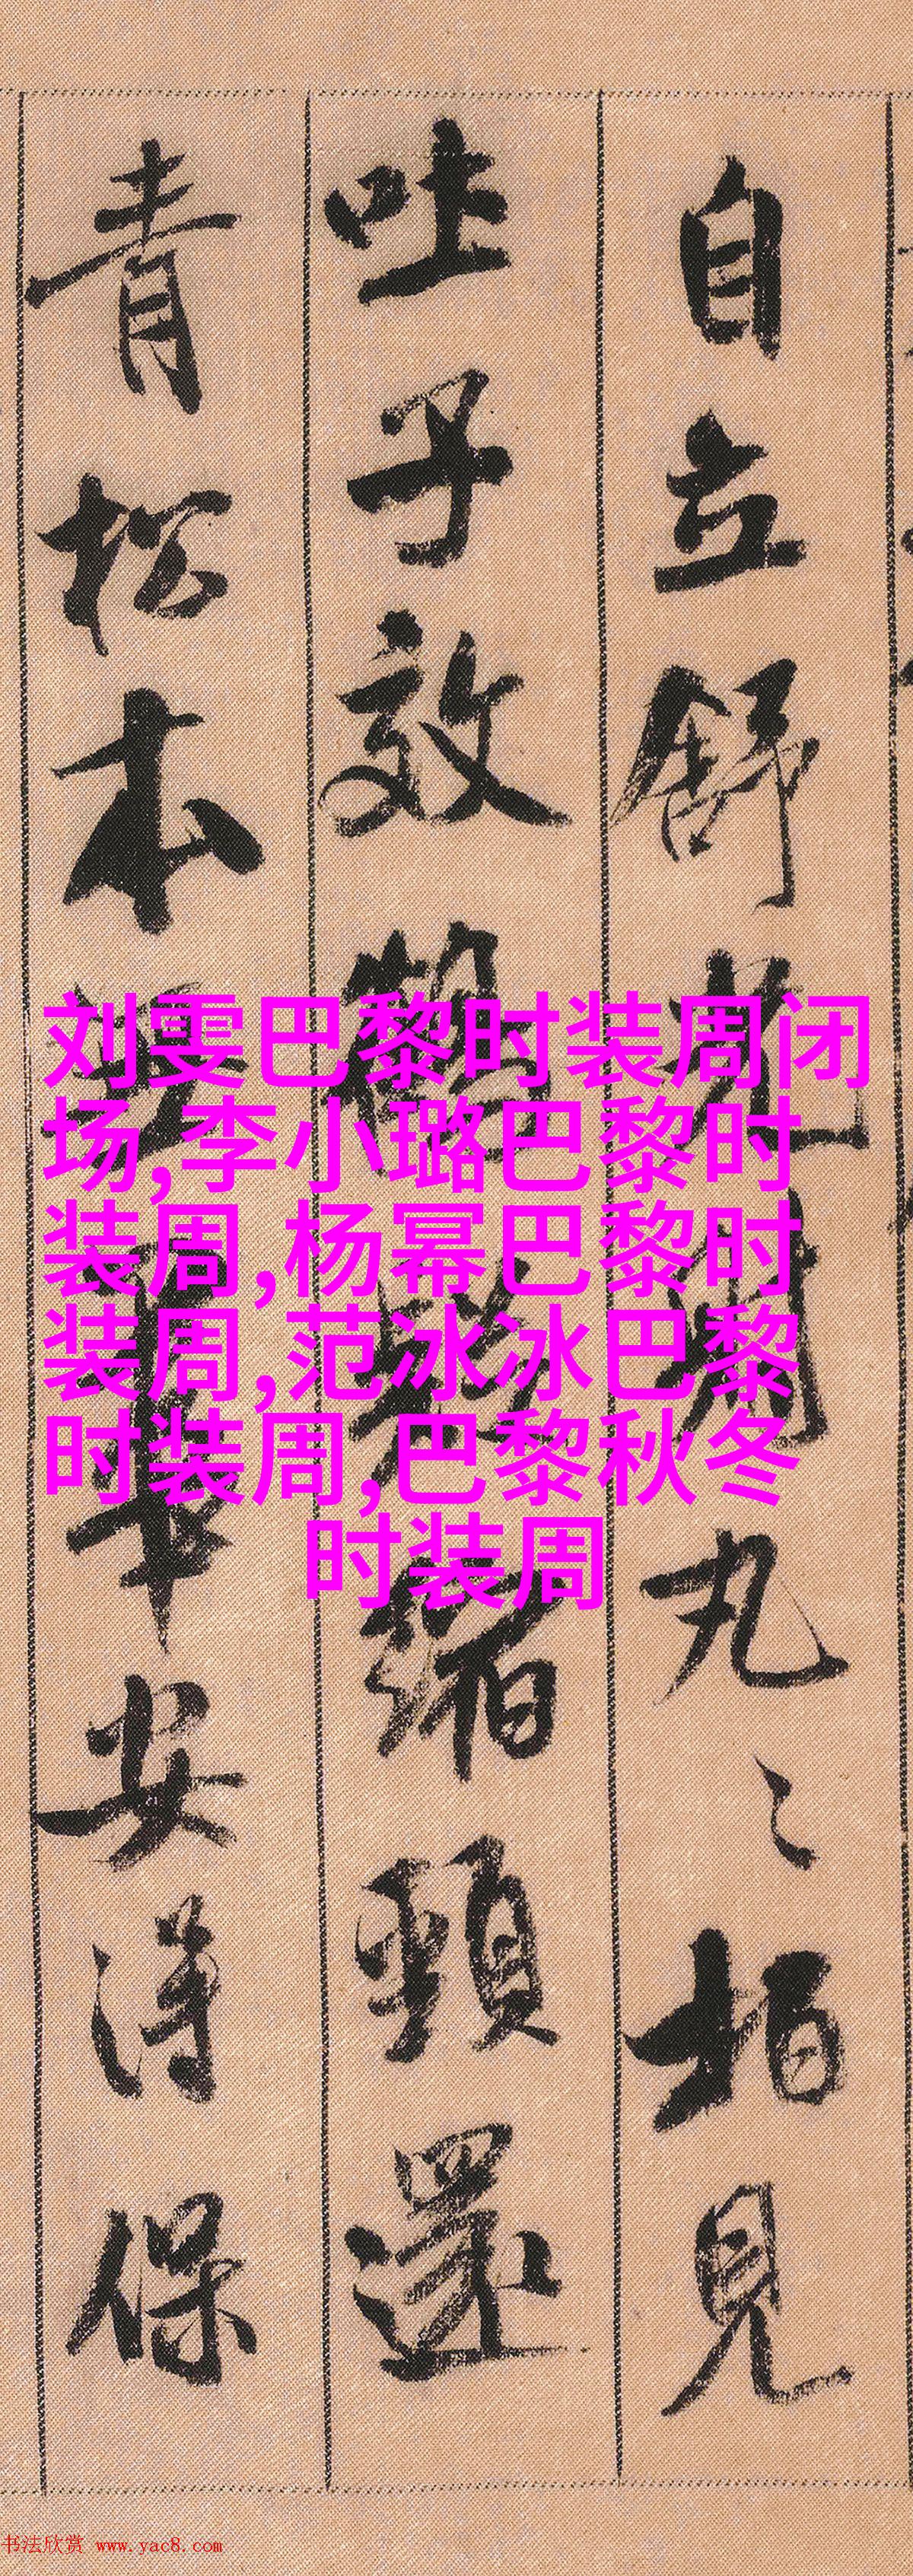 自立舒光射丸〻柏見
吐子效鶴疑縮頸還
青松本無華安得保
刘雯巴黎时装周闭
场,李小璐巴黎时
装周,杨幂巴黎时
装周,范冰冰巴黎
时装周,巴黎秋冬
时装周
书法欣赏 www.yac8.com